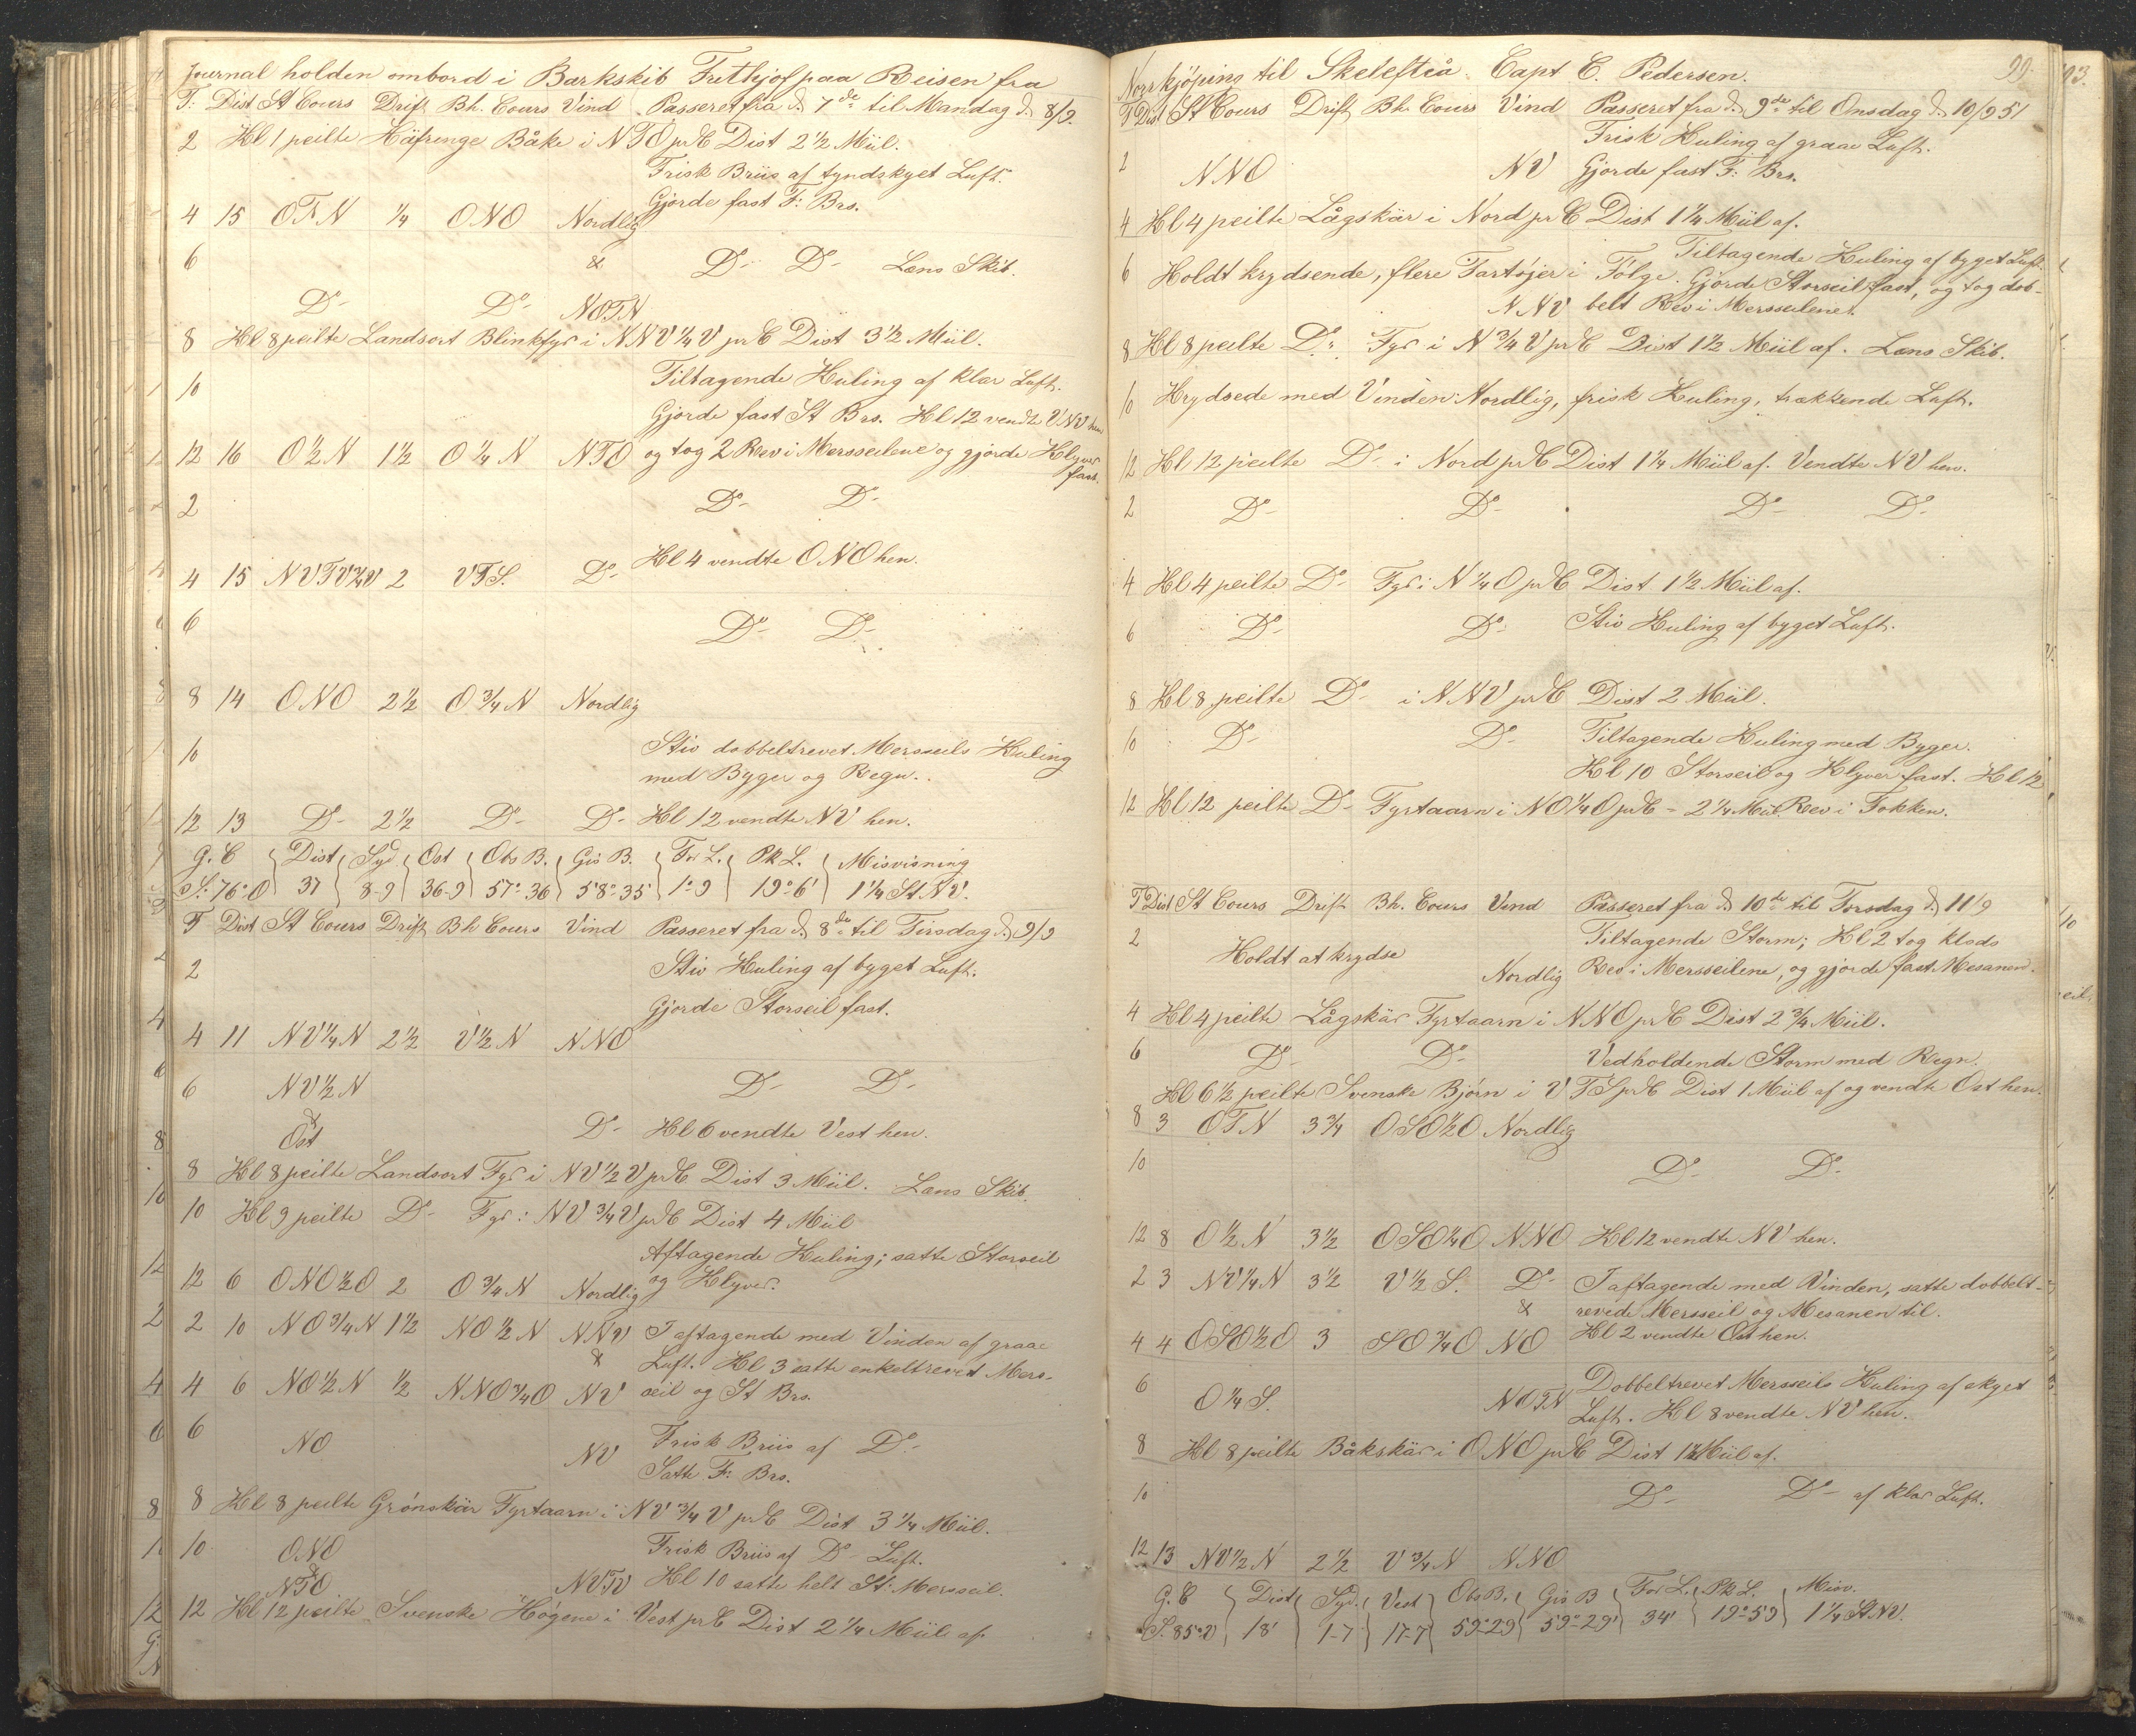 Journal holden ombord i Barkskib Frithjof paa Reisen fra
T: Dist St Cours Drift Bh. Cours Vind Passeret fra d. 7de til Mandag d. 8/9.
2 Kl 1 peilte Häfringe Båke i NTO pr C Dist 2 1/2 Miil.
Frisk Briis af tyndskyet Luft.
Gjorde fast F: Brs.
4 15 OTN 1/4 ONO Nordlig
6 & Do- Do- Læns Skib.
Do- Do- NOTN
8 Kl 8 peilte Landsort Blinkfyr i NNV 1/4 V pr C Dist 3 1/2 Miil.
10 Tiltagende Kuling af klar Luft.
Gjorde fast St Brs. Kl 12 vendte VNV hen
12 16 O 1/2 N 1 1/2 O 1/4 N NTO og tog 2 Rev i Mersseilene og gjorde Klyver
fast.
2 Do- Do-
Kl 4 vendte ONO hen.
4 15 NVTV 1/2 V 2 VTS. Do-
6 Do- Do-
8 14 ONO 2 1/2 O 3/4 N Nordlig
10 Stiv dobbeltrevet Mersseils Kuling
med Byger og Regn.
12 13 Do- 2 1/2 Do- Do- Kl 12 vendte NV hen.
G. C Dist Syd Ost Obs B. Gis B. For L. Pk L. Misvisning
S. 76° O 37 8-9 36-9 57°-36 58°-35 1°-9 19°-6' 1 1/4 St. NV.
T Dist St Cours Drift Bh Cours Vind Passeret fra d. 8de til Tirsdag d. 9/9
2 Stiv Kuling af byget Luft.
Gjorde Storseil fast.
4 11 NV 1/4 N 2 1/2 V 1/2 N NNO
6 NV 1/2 N Do- Do-
&
Ost Do- Kl 6 vendte Vest hen.
8 Kl 8 peilte Landsort Fyr i NV 1/2 V pr C Dist 3 Miil. Læns Skib.
10 Kl 9 peilte Do- Fyr i NV 3/4 V pr C Dist 4 Miil
Aftagende Kuling; satte Storseil
12 6 ONO 1/2 O 2 O 3/4 N Nordlig og Klyver.
2 10 NO 3/4 N 1 1/2 NO 1/2 N NNV I aftagende med Vinden af graae
& Luft. Kl 3 satte enkeltrevet Mers-
4 6 NO 1/2 N 1/2 NNO 3/4 O NV seil og St Brs.
6 NO NV Frisk Briis af Do-
Satte F: Brs.
8 Kl 8 peilte Grönskär Fyrtaarn i NV 3/4 V pr C Dist 3 1/4 Miil.
10 ONO Frisk Briis af Do- Luft.
&
NTO NVTV Kl 10 satte helt St: Mersseil.
12 Kl 12 peilte Svenske Högene i Vest pr C Dist 2 1/4 Miil af
Norrkjöping til Skelefteå Capt C. Pedersen. 99.
T Dist St Cours Drift Bh. Cours Vind Passeret fra d. 9de til Onsdag d. 10/9 51
Frisk Kuling af graae Luft.
2 NNO NV Gjorde fast F: Brs.
4 Kl 4 peilte Lågskär i Nord pr C Dist 1 1/4 Miil af.
Tiltagende Kuling af byget Luft.
6 Holdt krydsende, flere Fartöjer i Fölge. Gjorde Storseil fast, og tog dob-
NNV belt Rev i Mersseilene.
8 Kl 8 peilte Do- Fyr i N 3/4 V pr C Dist 1 1/2 Miil af. Læns Skib.
10 Krydsede med Vinden Nordlig, frisk Kuling, trækkende Luft.
12 Kl 12 peilte Do- i Nord pr C Dist 1 1/4 Miil af. Vendte NV hen.
2 Do- Do- Do- Do-
4 Kl 4 peilte Do- Fyr i N 1/4 O pr C Dist 1 1/2 Miil af.
6 Do- Do- Stiv Kuling af byget Luft.
8 Kl 8 peilte Do- i NNV pr C Dist 2 Miil.
10 Do- Do- Tiltagende Kuling med Byger.
Kl 10 Storseil og Klyver fast. Kl 12
12 Kl 12 peilte Do- Fyrtaarn i NO 1/4 O pr C - 2 1/4 Miil. Rev i Fokken.
T Dist St Cours Drift Bh. Cours Vind Passeret fra d. 10de til Torsdag d. 11/9
2 Tiltagende Storm; Kl 2 tog klods
Holdt at krydse Nordlig Rev i Mersseilene, og gjorde fast Mesanen.
4 Kl 4 peilte Lågskär Fyrtaarn i NNO pr C Dist 2 3/4 Miil.
6 Do- Do- Vedholdende Storm med Regn.
Kl 6 1/2 peilte Svenske Björn i VTS pr C Dist 1 Miil af og vendte Ost hen.
8 3 OTN 3 3/4 OSO 1/2 O Nordlig
10 Do- Do-
12 8 O 1/2 N 3 1/2 OSO 1/4 O NNO Kl 12 vendte NV hen.
2 3 NV 1/4 N 3 1/2 V 1/2 S. Do- I aftagende med Vinden, satte dobbelt-
& revede Mersseil og Mesanen til.
4 4 OSO 1/2 O 3 SO 3/4 O NO Kl 2 vendte Ost hen.
6 O 1/4 S. NOTN Dobbeltrevet Mersseils Kuling af skyet
Luft. Kl 8 vendte NV hen.
8 Kl 8 peilte Båkskär i ONO pr C Dist 1 1/2 Miil af.
10 Do- Do- af klar Luft.
12 13 NV 1/2 N 2 1/2 V 3/4 N NNO
G. C Dist Syd. Vest Obs B. Gis B For L. Pk L. Misv.
S. 85° V 18' 1-7 17-7 59°29 59°29' 34' 19°-59 1 1/4 St NV.